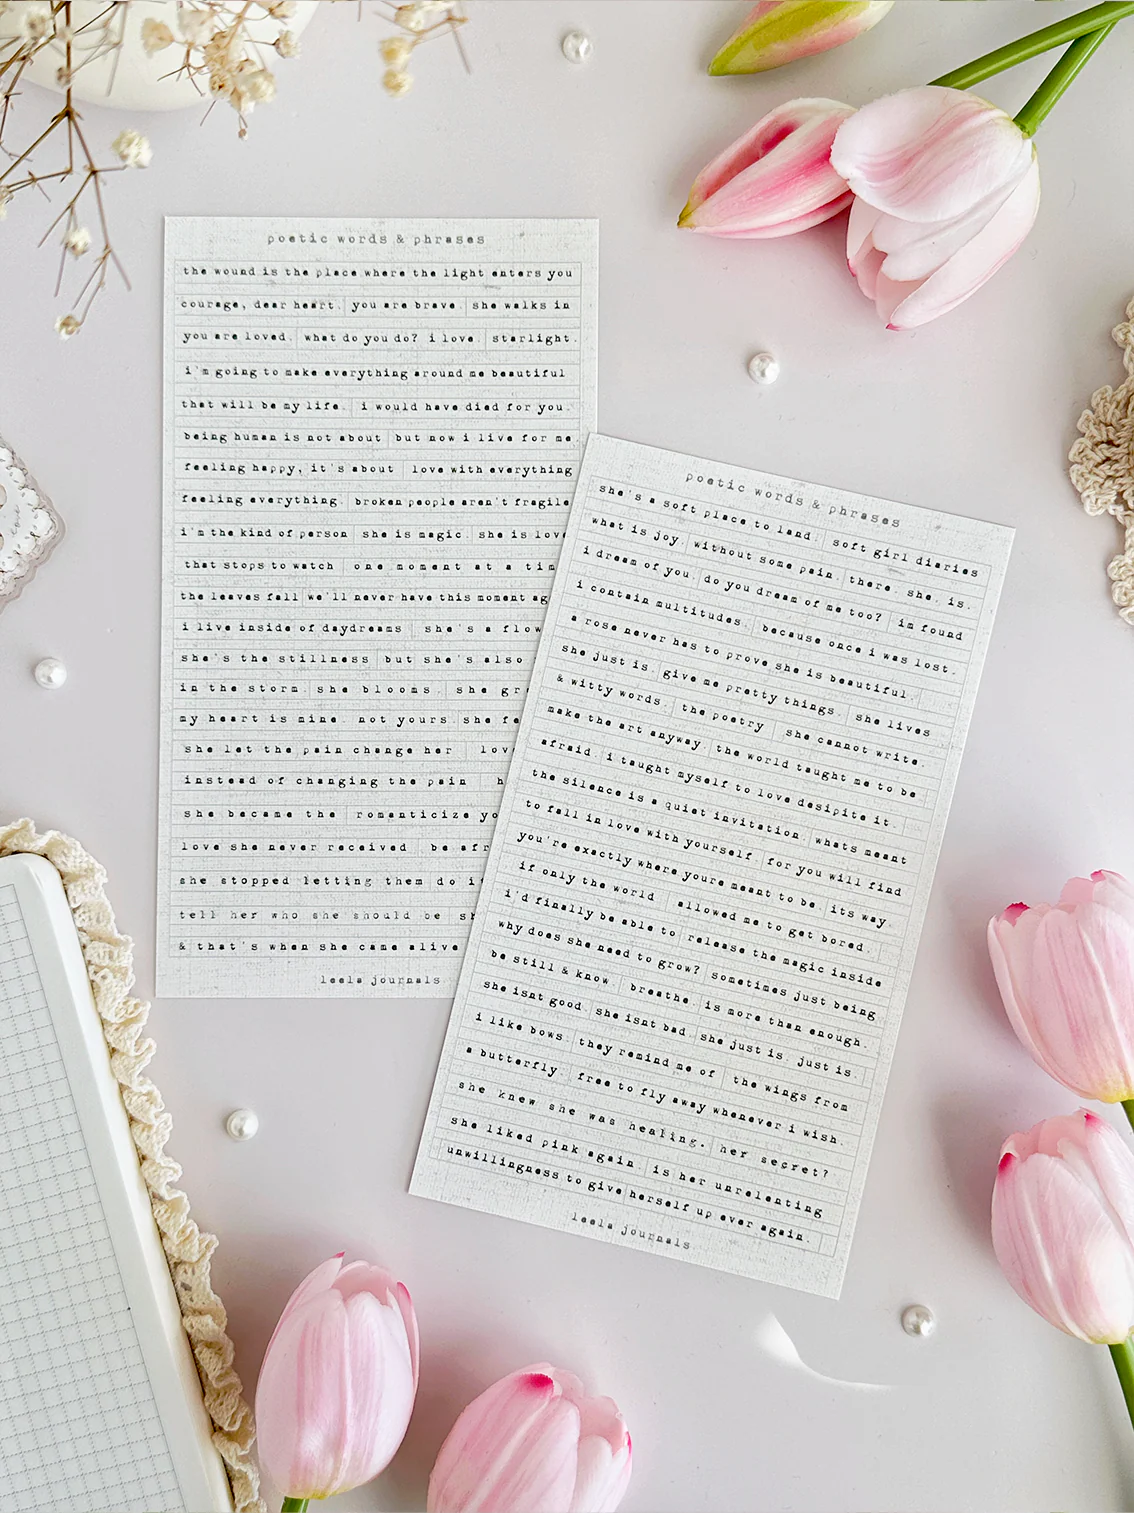 poetic words & phrases
the wound is the place where the light enters you
courage, dear heart. you are brave. she walks in
you are loved. what do you do? i love starlight.
i'm going to make everything around me beautiful
that will be my life. i would have died for you.
being human is not about but now i live for me
feeling happy, it's about love with everything
feeling everything. broken people aren't fragile
i'm the kind of person she is magic. she is love
that stops to watch one moment at a tim
the leaves fall we'll never have this moment ag
i live inside of daydreams she's a flow
she's the stillness but she's also
in the storm. she blooms. she gr
my heart is mine. not yours. she fe
she let the pain change her lov
instead of changing the pain h
she became the romanticize yo
love she never received be afr
she stopped letting them do i
tell her who she should be sh
& that's when she came alive
leela journals
poetic words & phrases
she's a soft place to land. soft girl diaries
what is joy. without some pain. there. she. is.
i dream of you. do you dream of me too? im found
i contain multitudes. because once i was lost.
a rose never has to prove she is beautiful.
she just is. give me pretty things. she lives
& witty words. the poetry she cannot write.
make the art anyway. the world taught me to be
afraid. i taught myself to love desipite it.
the silence is a quiet invitation. whats meant
to fall in love with yourself for you will find
you're exactly where youre meant to be. its way
if only the world allowed me to get bored.
i'd finally be able to release the magic inside
why does she need to grow? sometimes just being
be still & know. breathe. is more than enough.
she isnt good. she isnt bad. she just is. just is.
i like bows. they remind me of the wings from
a butterfly. free to fly away whenever i wish.
she knew she was healing. her secret?
she liked pink again. is her unrelenting
unwillingness to give herself up ever again.
leela journals